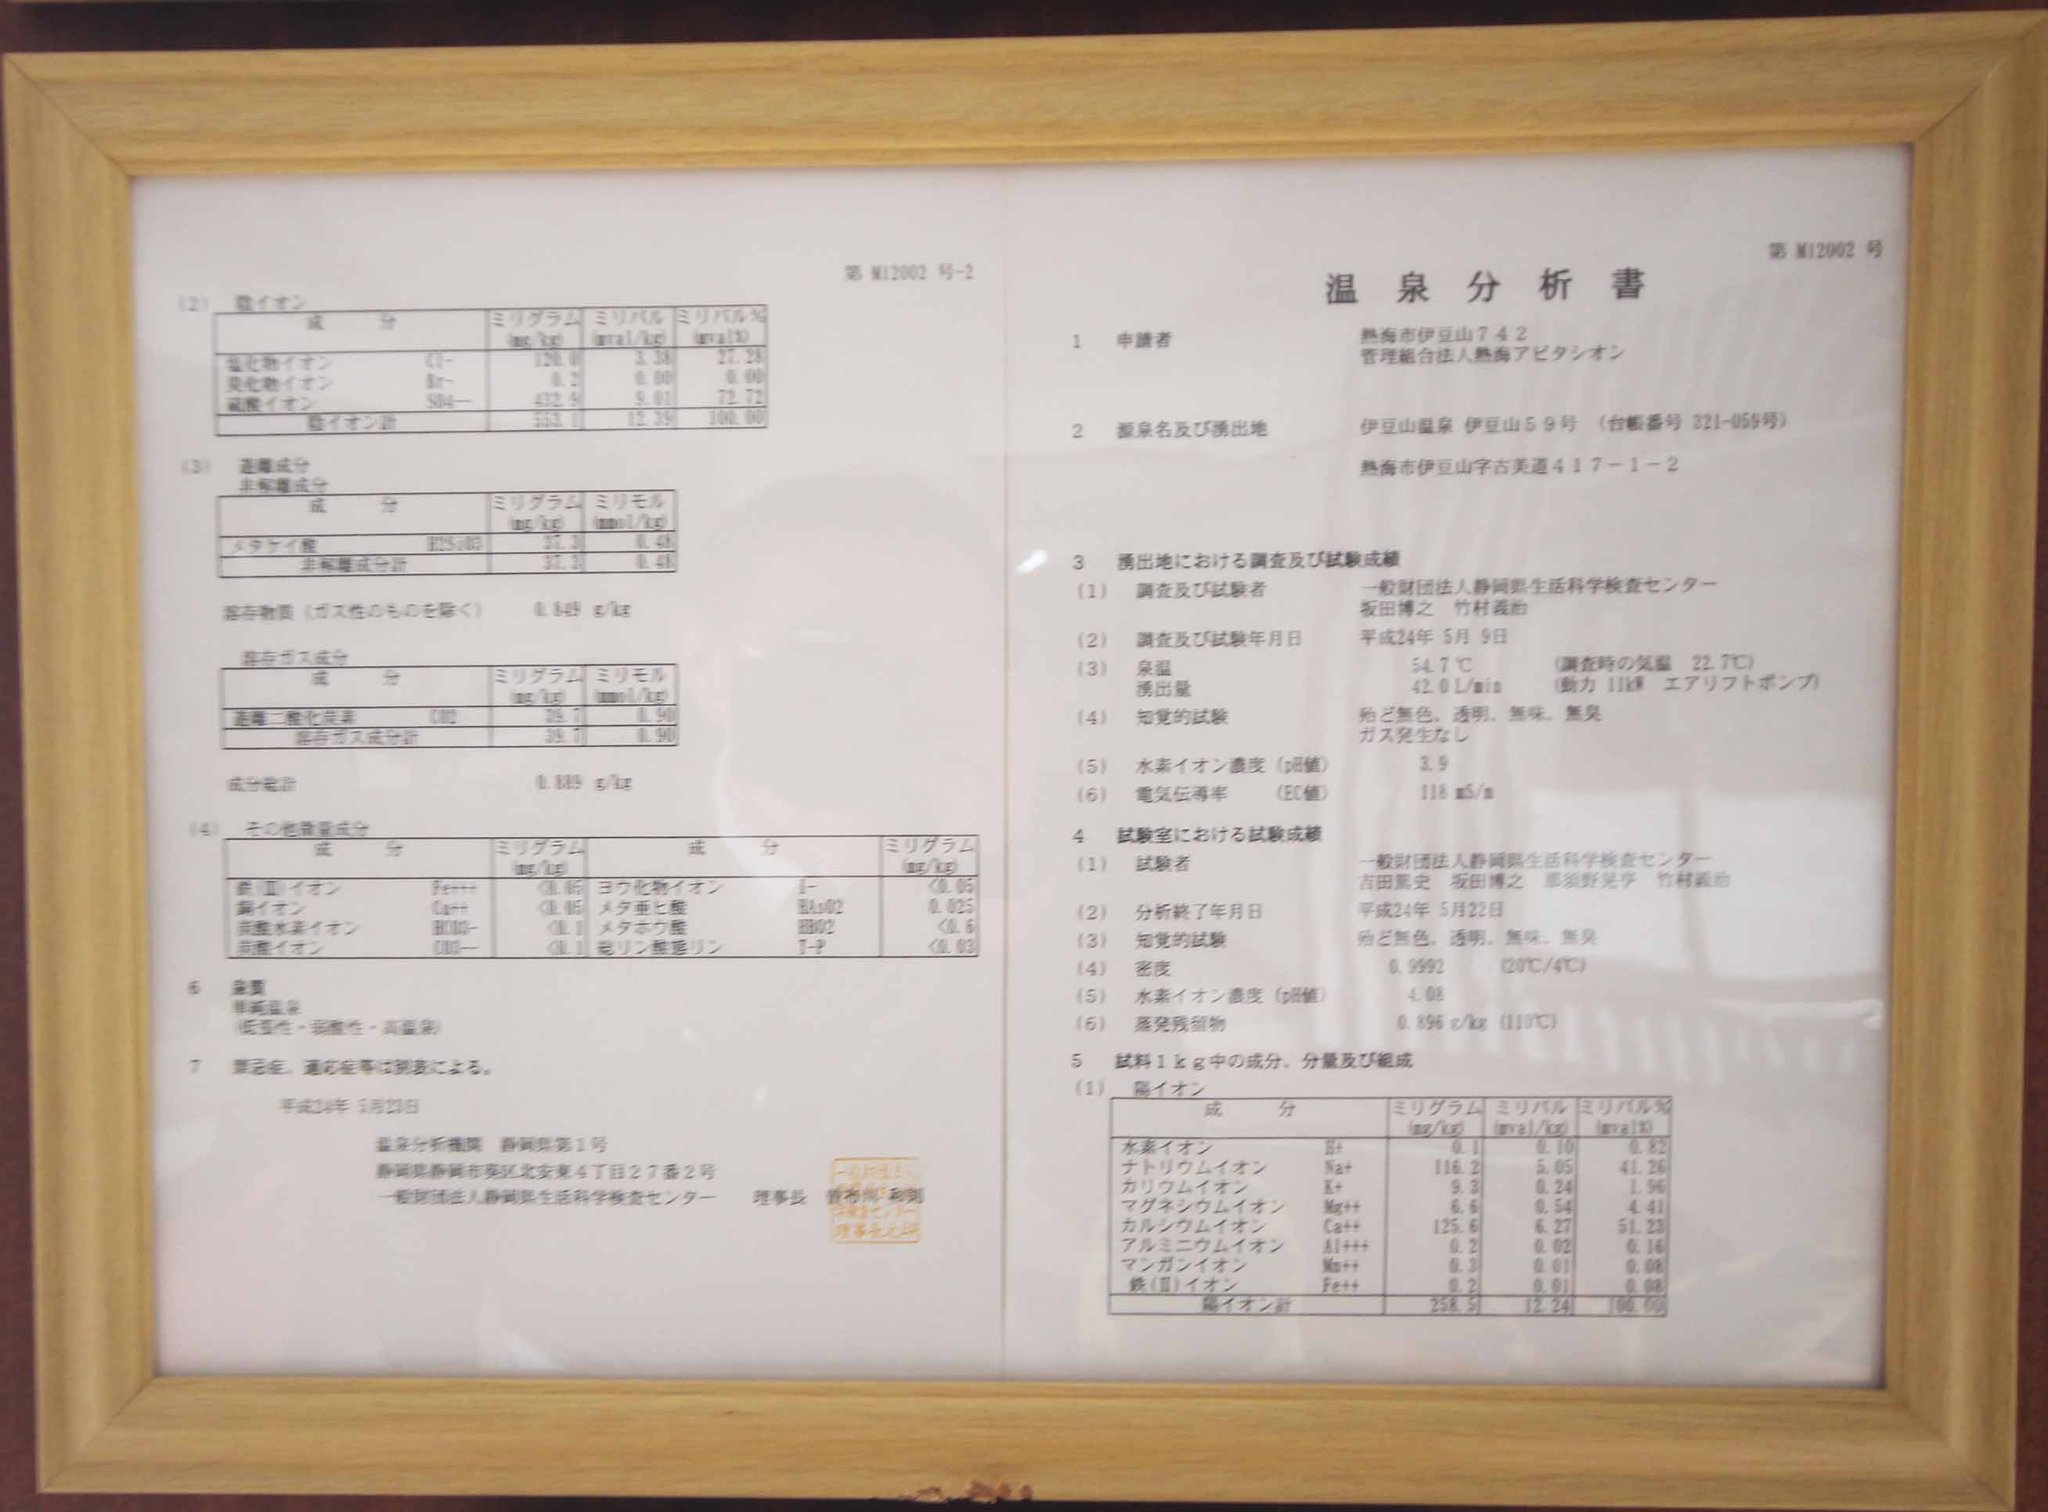 第 M12002 号
温 泉 分 析 書
1 申請者 熱海市伊豆山７４２
管理組合法人熱海アビタシオン
2 源泉名及び湧出地 伊豆山温泉 伊豆山５９号 (台帳番号 321-059号)
熱海市伊豆山字古美道４１７－１－２
3 湧出地における調査及び試験成績
(1) 調査及び試験者 一般財団法人静岡県生活科学検査センター
坂田博之 竹村義治
(2) 調査及び試験年月日 平成24年 5月 9日
(3) 泉温 54.7 ℃ (調査時の気温 22.7℃)
湧出量 42.0 L/min (動力 11kW エアリフトポンプ)
(4) 知覚的試験 殆ど無色、透明、無味、無臭
ガス発生なし
(5) 水素イオン濃度 (pH値) 3.9
(6) 電気伝導率 (EC値) 118 mS/m
4 試験室における試験成績
(1) 試験者 一般財団法人静岡県生活科学検査センター
吉田篤史 坂田博之 那須野晃亨 竹村義治
(2) 分析終了年月日 平成24年 5月22日
(3) 知覚的試験 殆ど無色、透明、無味、無臭
(4) 密度 0.9992 (20℃/4℃)
(5) 水素イオン濃度 (pH値) 4.08
(6) 蒸発残留物 0.896 g/kg (110℃)
5 試料１ｋｇ中の成分、分量及び組成
(1) 陽イオン
成 分 ミリグラム ミリバル ミリバル%
(mg/kg) (mval/kg) (mval%)
水素イオン H+ 0.1 0.10 0.82
ナトリウムイオン Na+ 116.2 5.05 41.26
カリウムイオン K+ 9.3 0.24 1.96
マグネシウムイオン Mg++ 6.6 0.54 4.41
カルシウムイオン Ca++ 125.6 6.27 51.23
アルミニウムイオン Al+++ 0.2 0.02 0.16
マンガンイオン Mn++ 0.3 0.01 0.08
鉄(Ⅱ)イオン Fe++ 0.2 0.01 0.08
陽イオン計 258.5 12.24 100.00
第 M12002 号-2
(2) 陰イオン
成 分 ミリグラム ミリバル ミリバル%
(mg/kg) (mval/kg) (mval%)
塩化物イオン Cl- 120.0 3.38 27.28
臭化物イオン Br- 0.2 0.00 0.00
硫酸イオン SO4-- 432.9 9.01 72.72
陰イオン計 553.1 12.39 100.00
(3) 遊離成分
非解離成分
成 分 ミリグラム ミリモル
(mg/kg) (mmol/kg)
メタケイ酸 H2SiO3 37.3 0.48
非解離成分計 37.3 0.48
溶存物質 (ガス性のものを除く) 0.849 g/kg
溶存ガス成分
成 分 ミリグラム ミリモル
(mg/kg) (mmol/kg)
遊離二酸化炭素 CO2 39.7 0.90
溶存ガス成分計 39.7 0.90
成分総計 0.889 g/kg
(4) その他微量成分
成 分 ミリグラム 成 分 ミリグラム
(mg/kg) (mg/kg)
鉄(Ⅲ)イオン Fe+++ <0.05 ヨウ化物イオン I- <0.05
銅イオン Cu++ <0.05 メタ亜ヒ酸 HAsO2 0.025
炭酸水素イオン HCO3- <0.1 メタホウ酸 HBO2 <0.6
炭酸イオン CO3-- <0.1 総リン酸態リン T-P <0.03
6 泉質
単純温泉
(低張性・弱酸性・高温泉)
7 禁忌症、適応症等は別表による。
平成24年 5月23日
温泉分析機関 静岡県第１号
静岡県静岡市葵区北安東４丁目２７番２号
一般財団法人静岡県生活科学検査センター 理事長